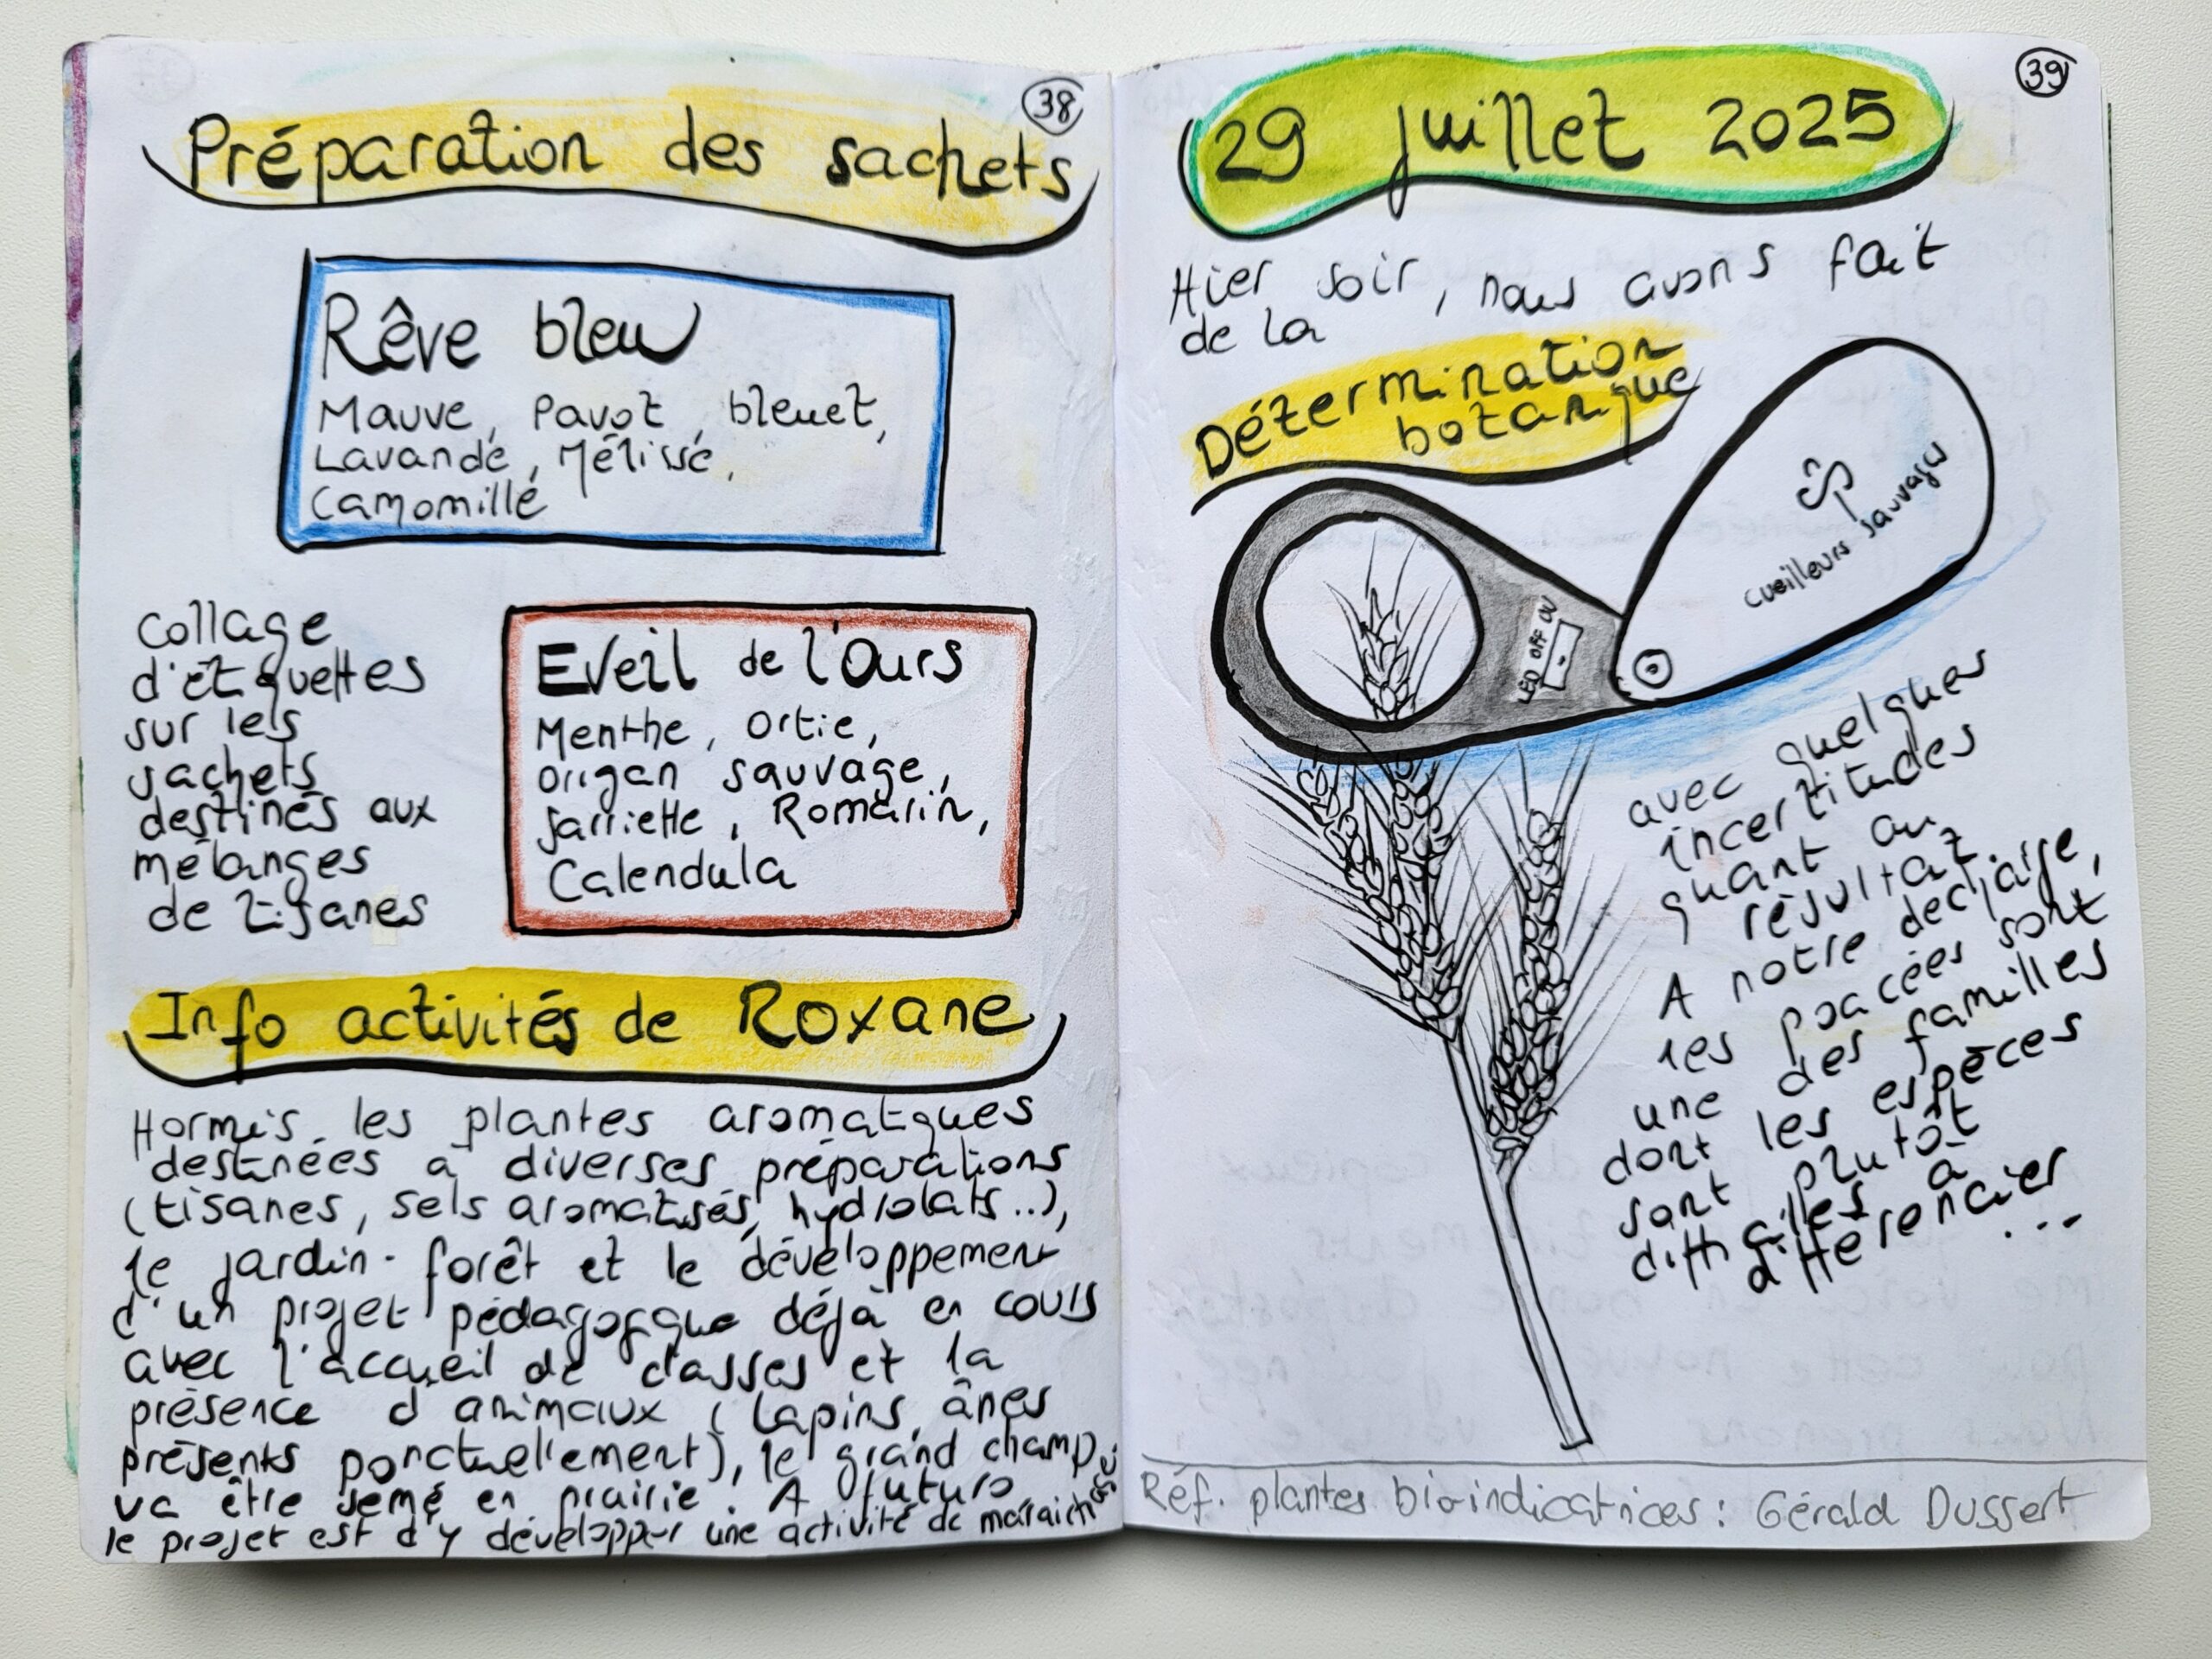 38
Préparation des sachets
Rêve bleu
Mauve, Pavot, bleuet,
Lavande, Mélisse,
Camomille
Collage
d'étiquettes
sur les
sachets
destinés aux
mélanges
de tisanes
Eveil de l'Ours
Menthe, Ortie,
origan sauvage,
sarriette, Romarin,
Calendula
Info activités de Roxane
Hormis les plantes aromatiques
destinées à diverses préparations
(tisanes, sels aromatisés, hydrolats...),
le jardin-forêt et le développement
d'un projet pédagogique déjà en cours
avec l'accueil de classes et la
présence d'animaux (lapins, ânes
présents ponctuellement), le grand champ
va être semé en prairie. A futuro
le projet est d'y développer une activité de maraichage
39
29 juillet 2025
Hier soir, nous avons fait
de la
Détermination
botanique
cueilleurs sauvages
LED OFF UV
avec quelques
incertitudes
quant au
résultat.
A notre décharge,
les poacées sont
une des familles
dont les espèces
sont plutôt
difficiles à
différencier
...
Réf. plantes bio-indicatrices : Gérald Dussert